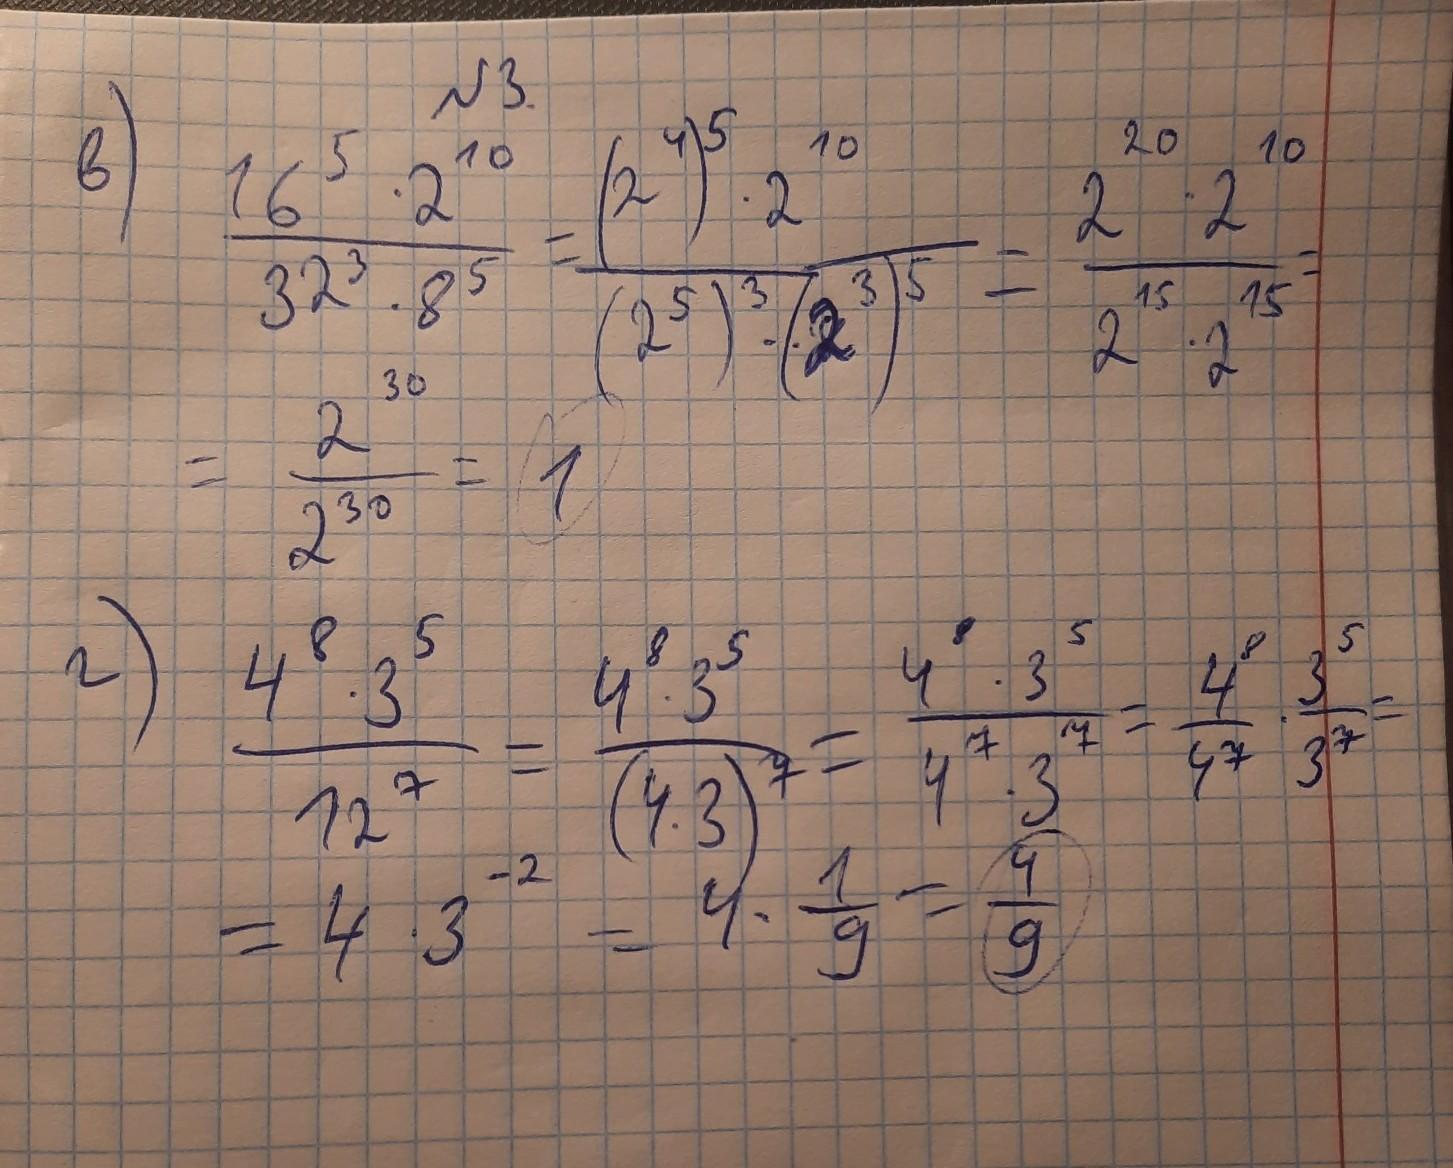 №3.
в) \frac{16^5 \cdot 2^{10}}{32^3 \cdot 8^5} = \frac{(2^4)^5 \cdot 2^{10}}{(2^5)^3 \cdot (2^3)^5} = \frac{2^{20} \cdot 2^{10}}{2^{15} \cdot 2^{15}} =
= \frac{2^{30}}{2^{30}} = 1
г) \frac{4^8 \cdot 3^5}{12^7} = \frac{4^8 \cdot 3^5}{(4 \cdot 3)^7} = \frac{4^8 \cdot 3^5}{4^7 \cdot 3^7} = \frac{4^8}{4^7} \cdot \frac{3^5}{3^7} =
= 4 \cdot 3^{-2} = 4 \cdot \frac{1}{9} = \frac{4}{9}